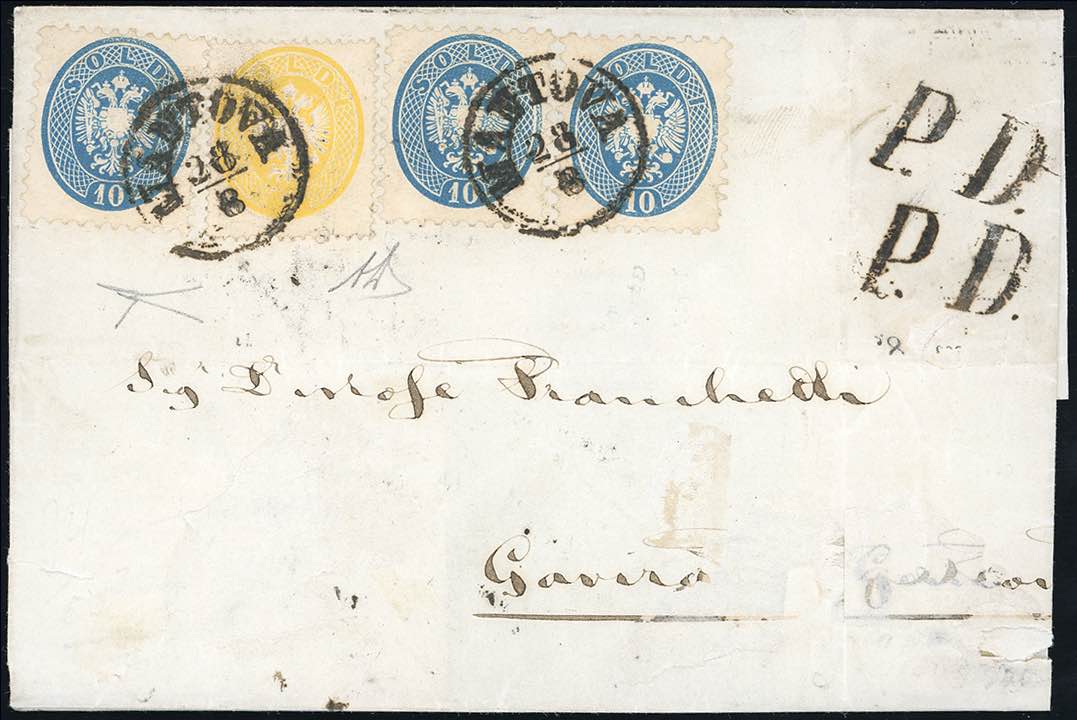 SOLDI SOLDI SOLDI SOLDI
10 10 10
MANTOVA
28/8
MANTOVA
28/8
P. D.
P. D.
Sig Franchetti
Gavira